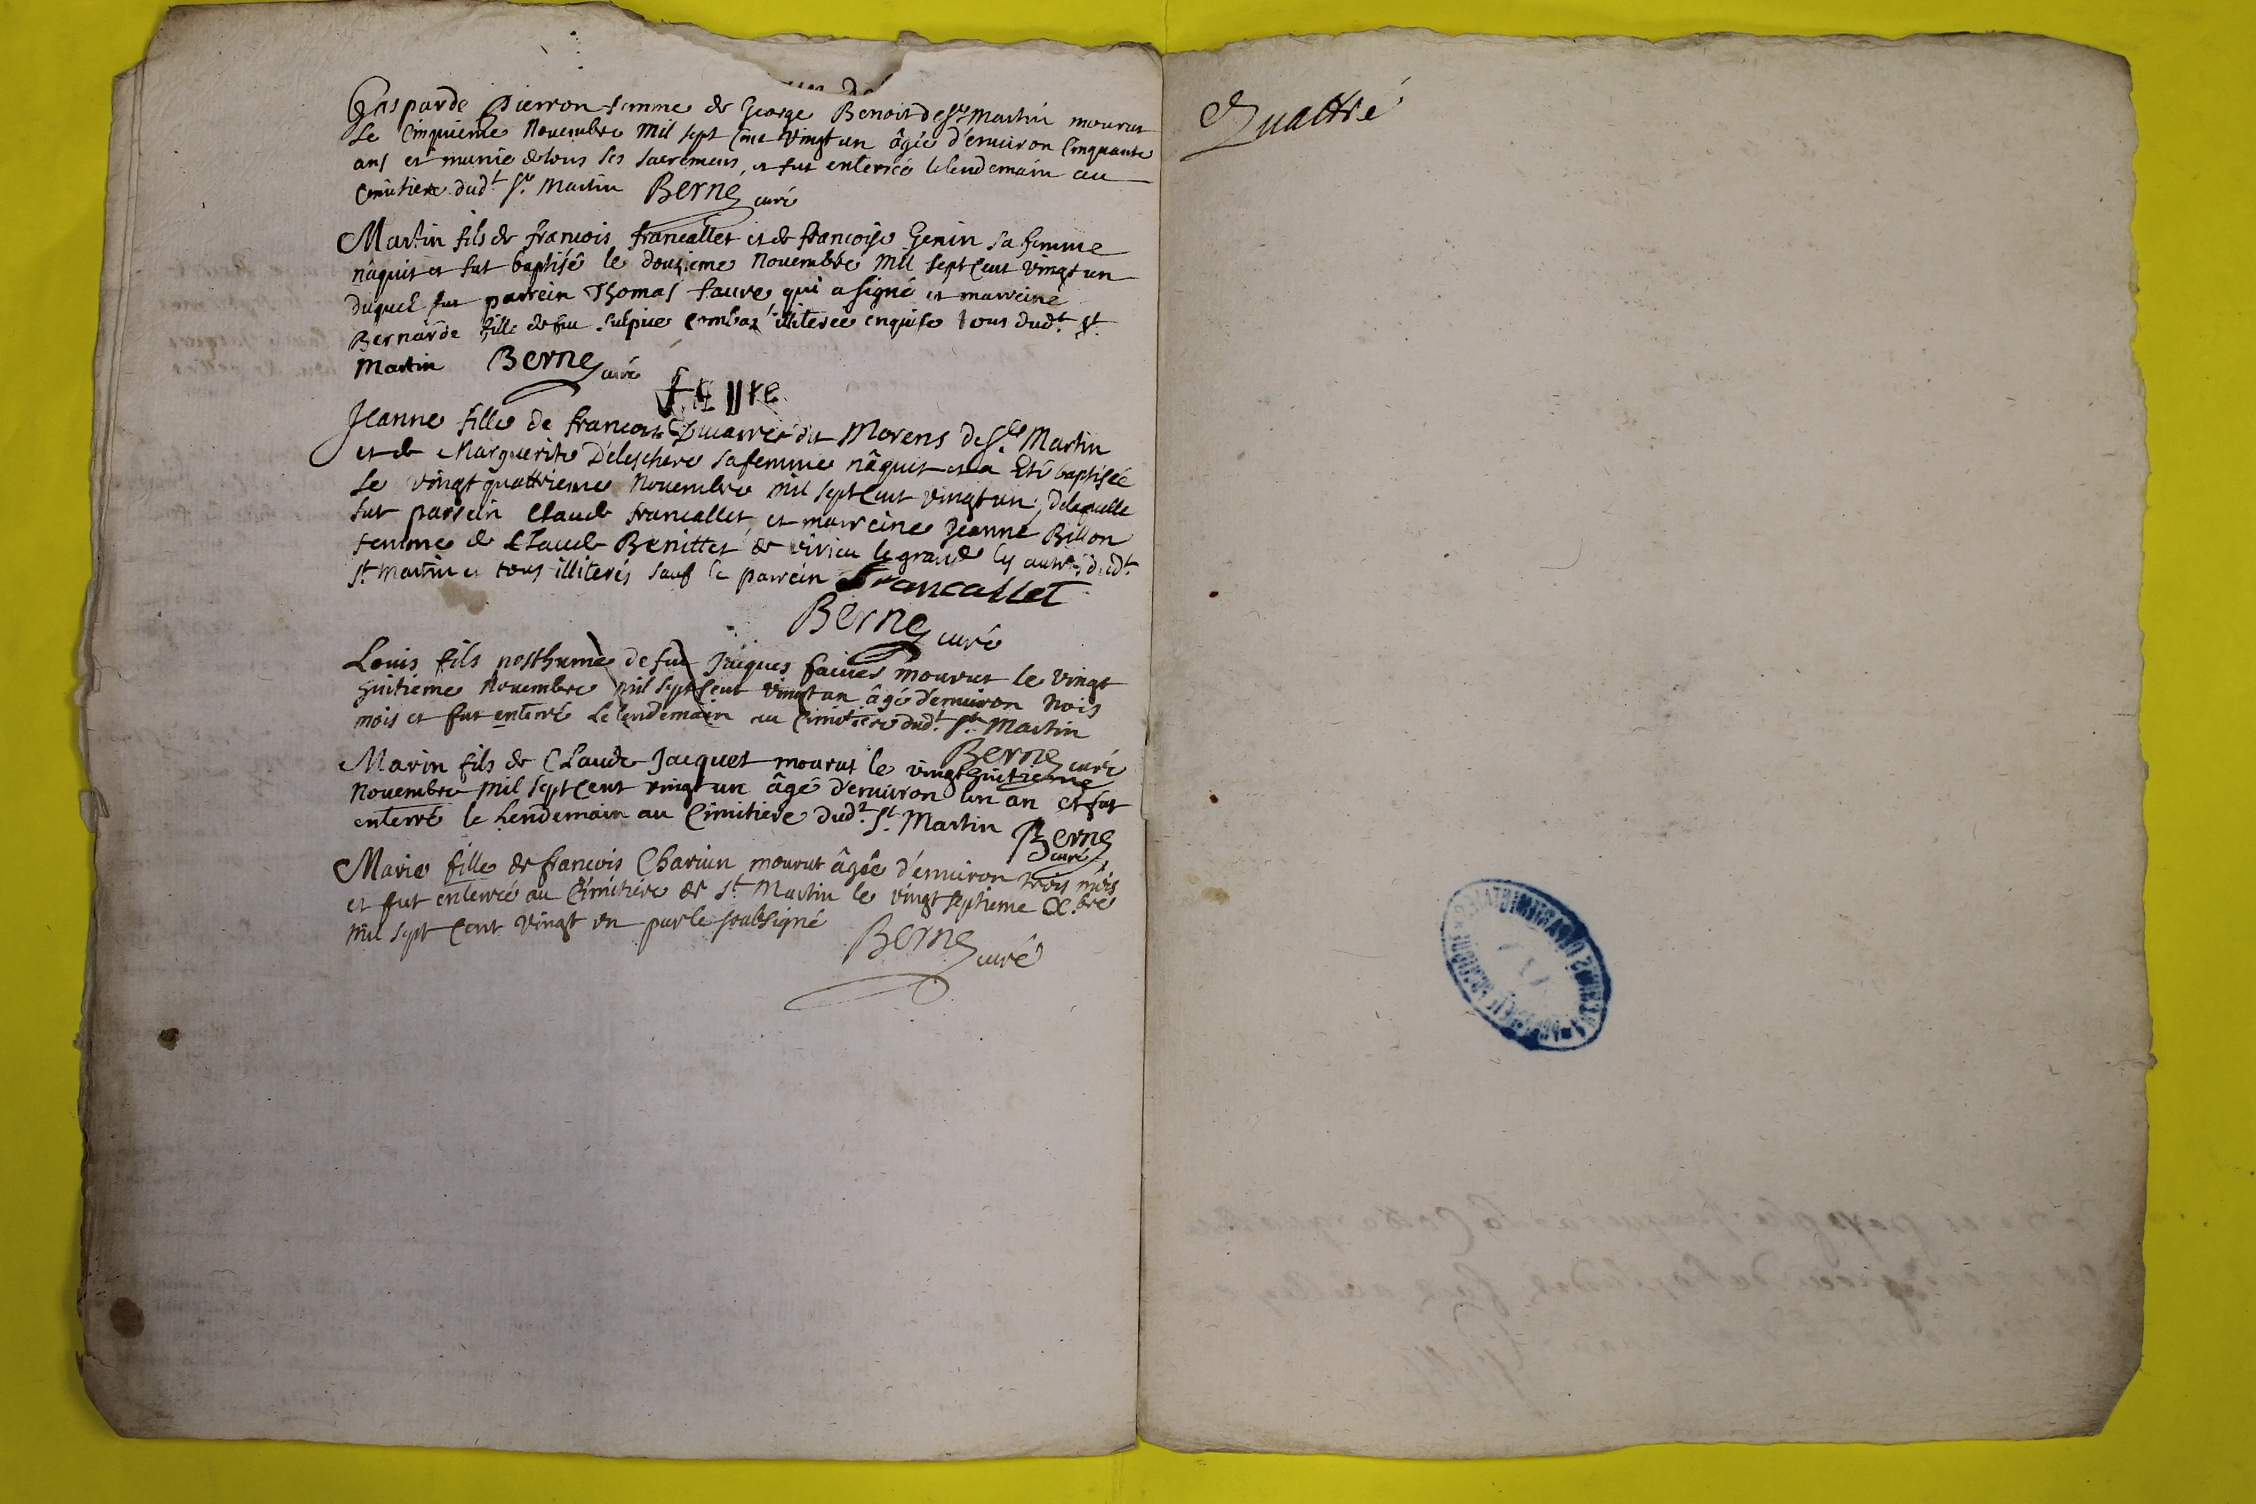 Gasparde Pierron femme de George Benoit de St Martin mourut
Le Cinquieme Novembre mil sept Cent vingt un âgée d'environ Cinquante
ans et munie de tous ses sacremens, et fut enterrée le lendemain au
Cimitiere dudt St Martin Berne curé
Martin fils de francois francallet et de francoise Genin sa femme
nâquit et fut baptisé le douzieme Novembre mil sept Cent vingt un
duquel fut parrein Thomas faure qui a signé et marreine
Bernarde fille de feu Sulpice Combaz illiterée enquise tous dudt St
Martin Berne curé
faure
Jeanne fille de francois Ducarre dit Morens de St Martin
et de Marguerite Deleschere sa femme nâquit et a Eté baptisée
le vingt quattrieme Novembre mil sept Cent vingt un, de laquelle
fut parrein Claude francallet, et marreine Jeanne Billon
femme de Claude Benittet de virieu le grand les autres dudt
St Martin et tous illiterés sauf le parrein francallet
Berne curé
Louis fils posthume de feu Jacques faure mourut le vingt
huitieme Novembre mil sept Cent vingt un âgé d'environ trois
mois et fut enterré le lendemain au Cimitiere dudt St Martin
Berne curé
Marin fils de Claude Jacquet mourut le vingt huitieme
Novembre mil sept Cent vingt un âgé d'environ un an et fut
enterré le lendemain au Cimitiere dudt St Martin Berne
curé
Marie fille de francois Charcun mourut âgée d'environ trois mois
et fut enterrée au Cimitiere de St Martin le vingt septieme Xbre
mil sept Cent vingt un par le soubsigné
Berne curé
Quattre